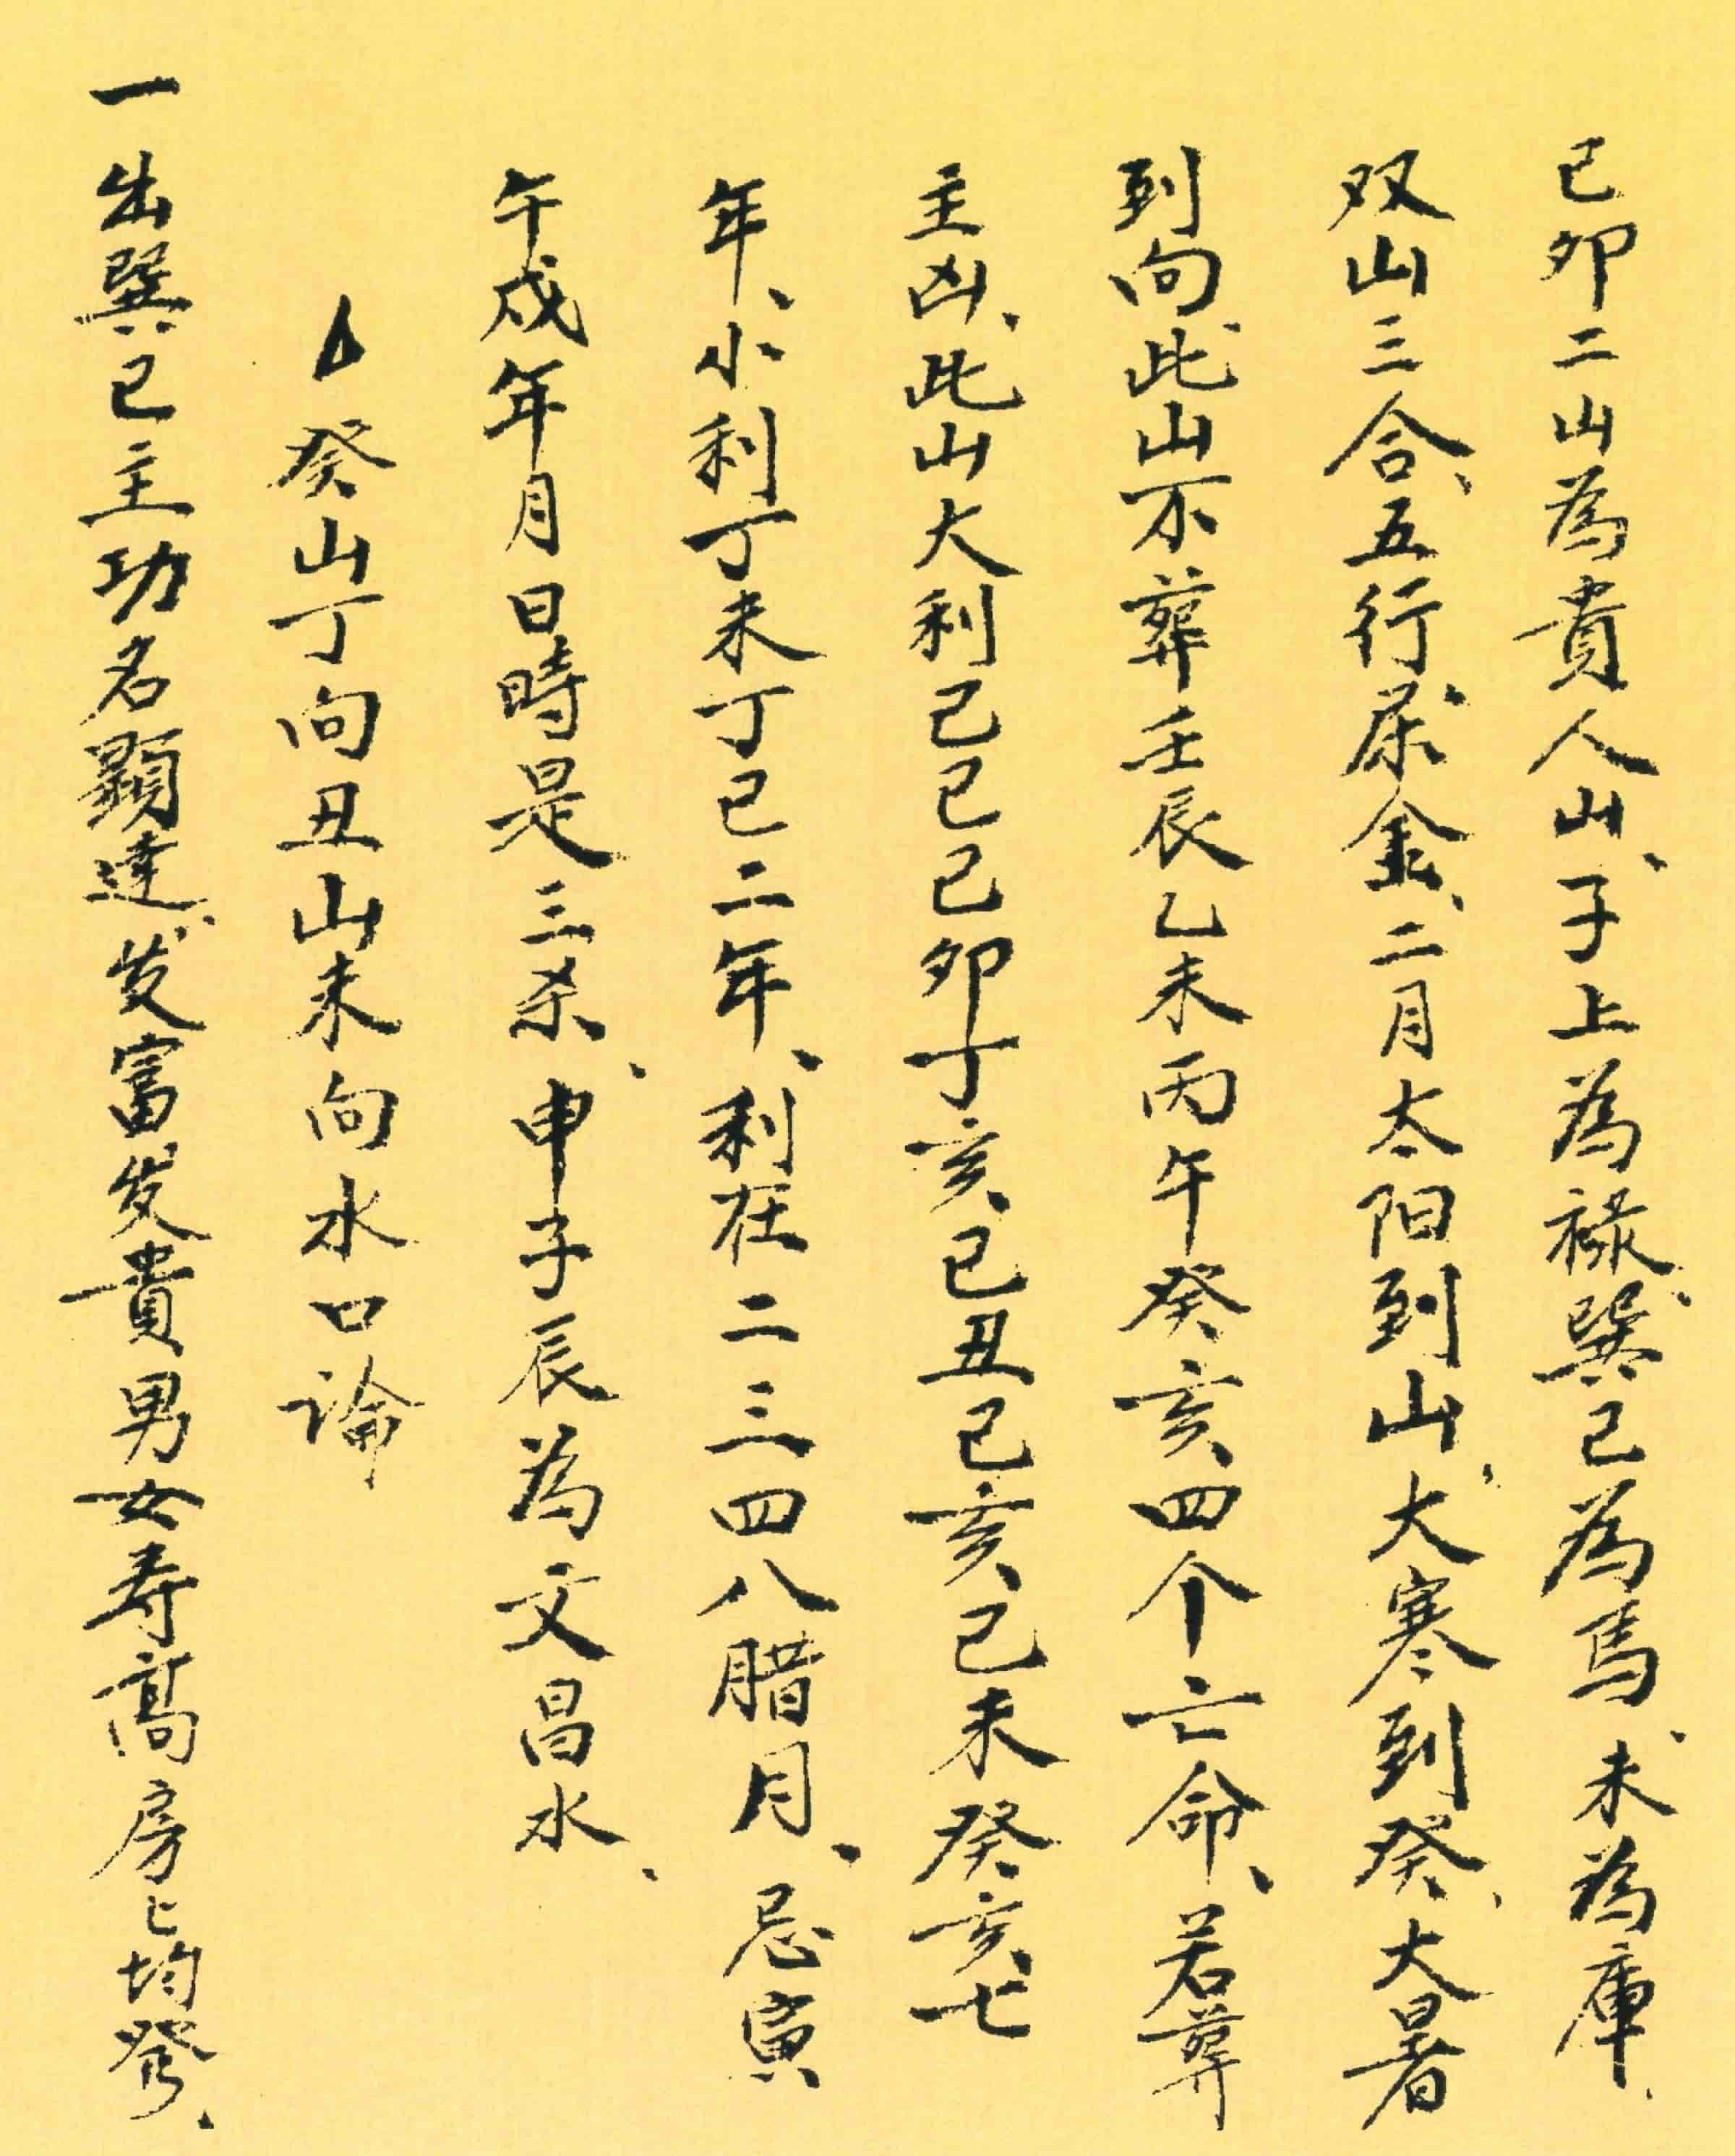 巳卯二山為貴人山、子上為祿、巽巳為馬、未為庫、
双山三合、五行屬金、二月太阳到山、大寒到癸、大暑
到向、此山不葬壬辰乙未丙午癸亥四个亡命、若葬
主凶、此山大利己巳己卯丁亥己丑己亥己未癸亥七
年、小利丁未丁巳二年、利在二三四八腊月、忌寅
午戌年月日時是三杀、申子辰為文昌水、
癸山丁向丑山未向水口論
一出巽巳主功名顯達、发富发貴男女寿高房匕均發、